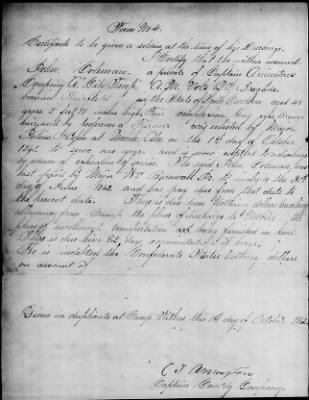 Form No 4.
Certificate to be given a soldier at the time of his Discharge.
I Certify that the within named
John Coleman, a private of Captain Arrington's
Company A. City Troop, A. M. Vols
born in Fairfield in the State of South Carolina aged
years 5 feet inches high, Fair complexion, Grey eyes, Brown
hair, and by profession a Farmer was enlisted by Major
at on the 1st day of October
1861 to serve one year, and is now entitled to a discharge
by reason of expiration of service. The said John Coleman, was
last paid by Major Wm Barnwell Jr. to include the
day of June 1862 and has pay due from that date to
the present date. There is due him Nothing dollars travelling
allowance from the place of discharge to Mobile the
place of enrollment, transportation not being furnished in kind.
There is due him 92 days commutation of horse.
He is indebted the Confederate States Nothing dollars
on account of
Given in duplicate at Camp Withers, this 1st day of October 1862
C. T. Arrington
Captain Comd'g Company.